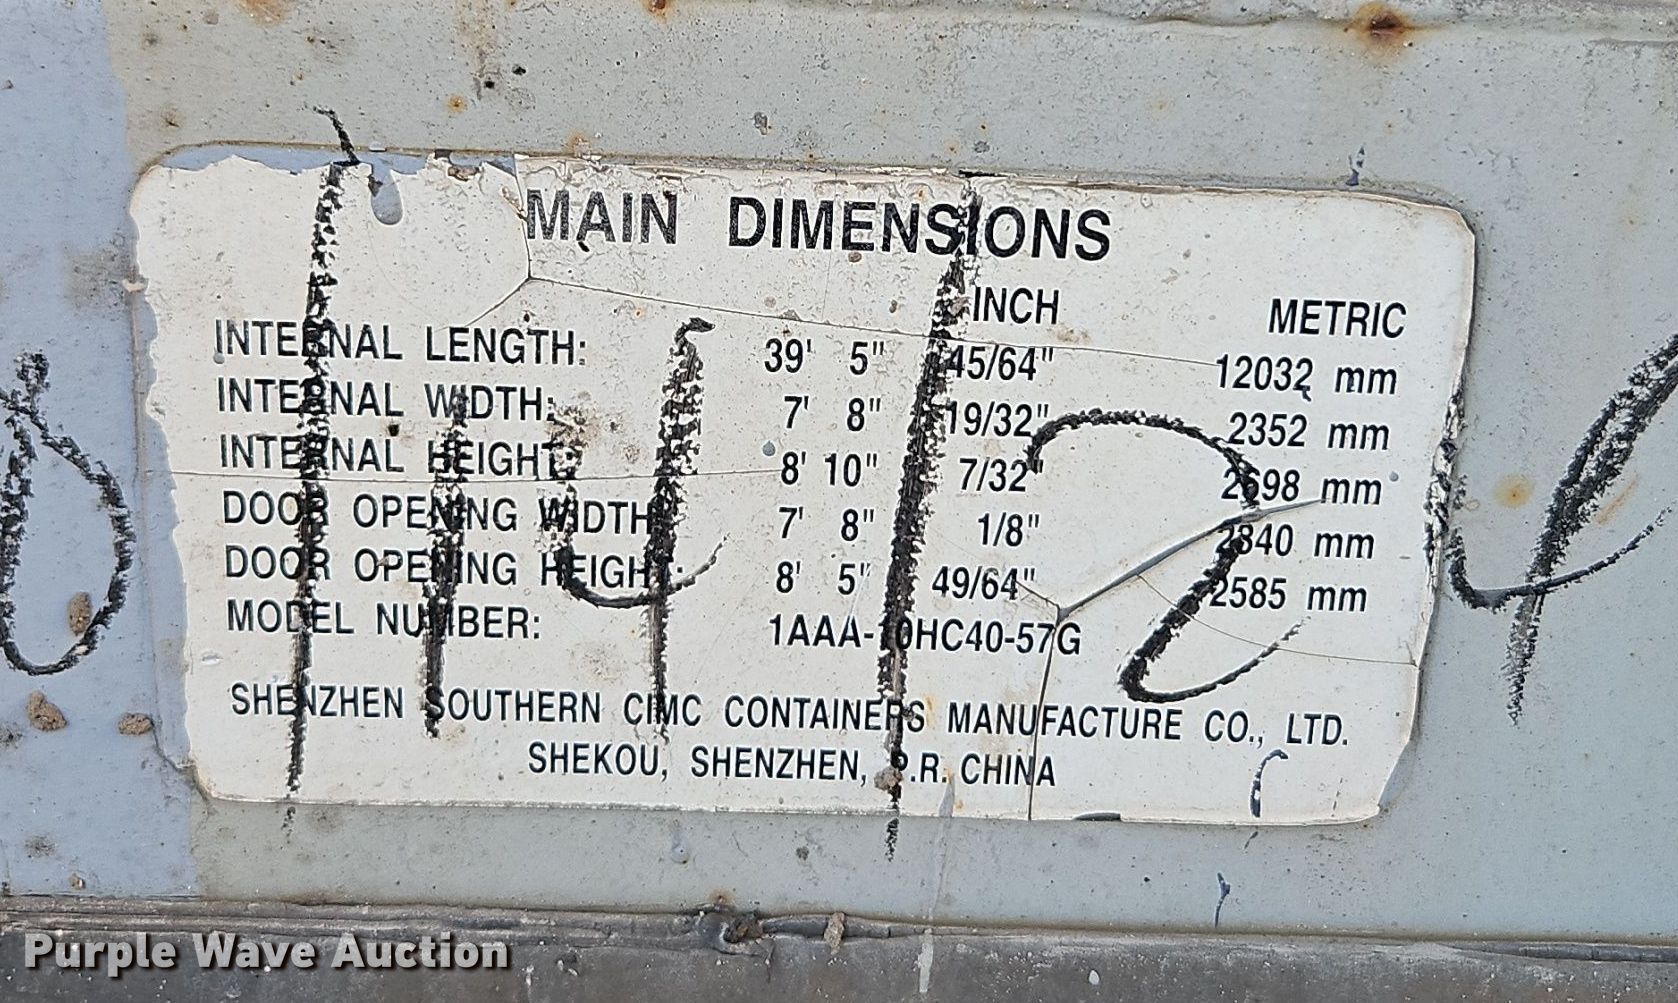 MAIN DIMENSIONS
INCH METRIC
INTERNAL LENGTH: 39' 5" 45/64" 12032 mm
INTERNAL WIDTH: 7' 8" 19/32" 2352 mm
INTERNAL HEIGHT: 8' 10" 7/32" 2698 mm
DOOR OPENING WIDTH: 7' 8" 1/8" 2340 mm
DOOR OPENING HEIGHT: 8' 5" 49/64" 2585 mm
MODEL NUMBER: 1AAA-10HC40-57G
SHENZHEN SOUTHERN CIMC CONTAINERS MANUFACTURE CO., LTD.
SHEKOU, SHENZHEN, P.R. CHINA
Purple Wave Auction